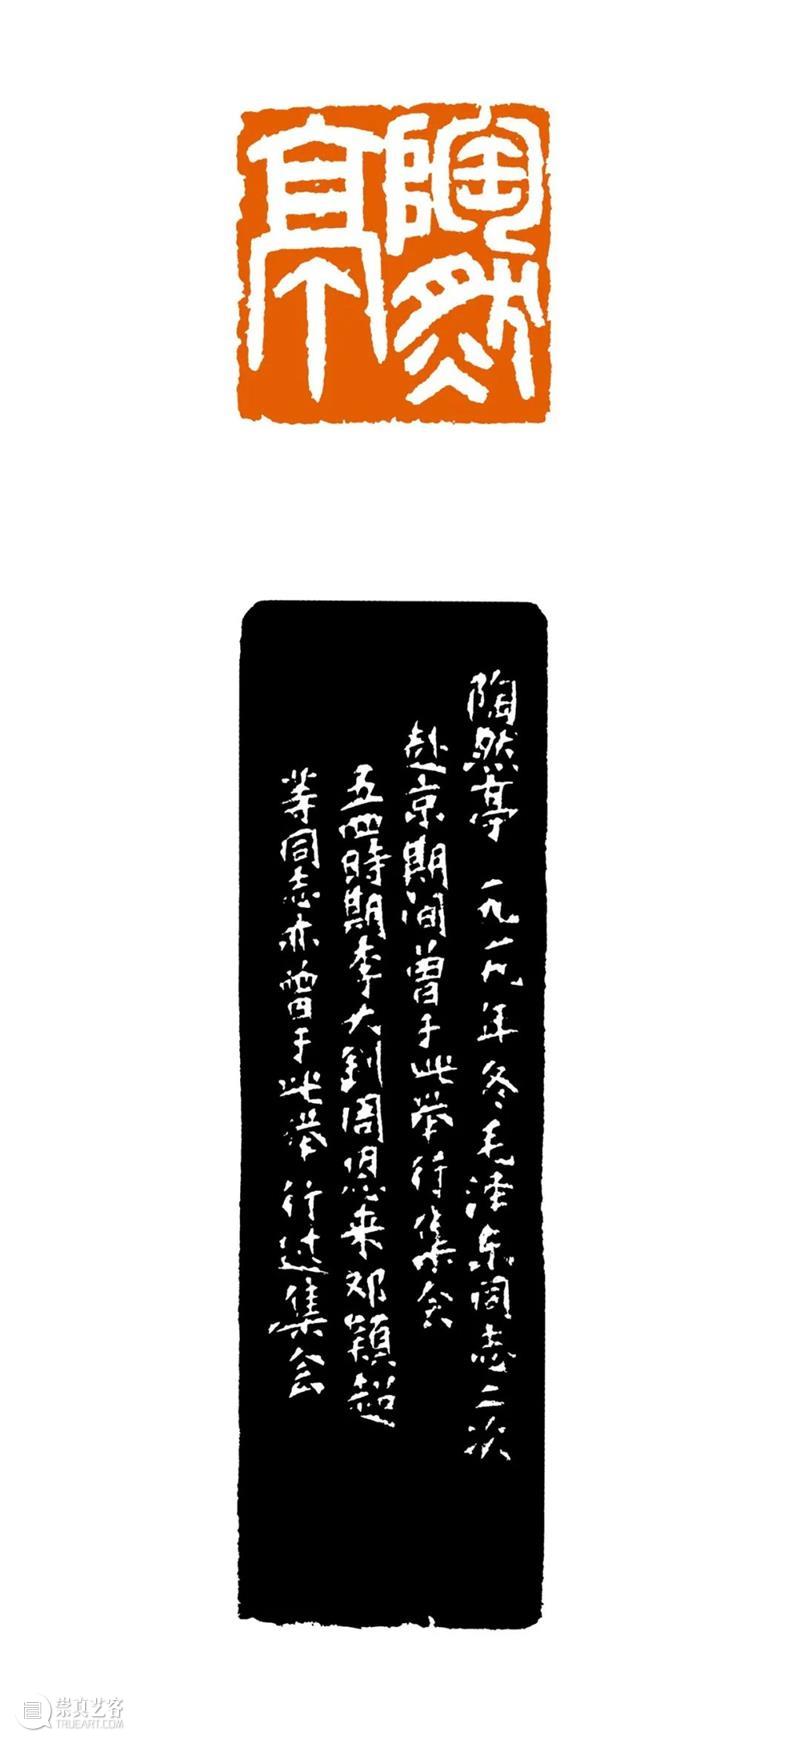 陶然亭
陶然亭 一九一九年冬毛泽东同志二次
赴京期间曾于此举行集会
五四時期李大釗周恩来邓穎超
等同志亦曾于此举行过集会
崇真艺客
TRUEART.COM